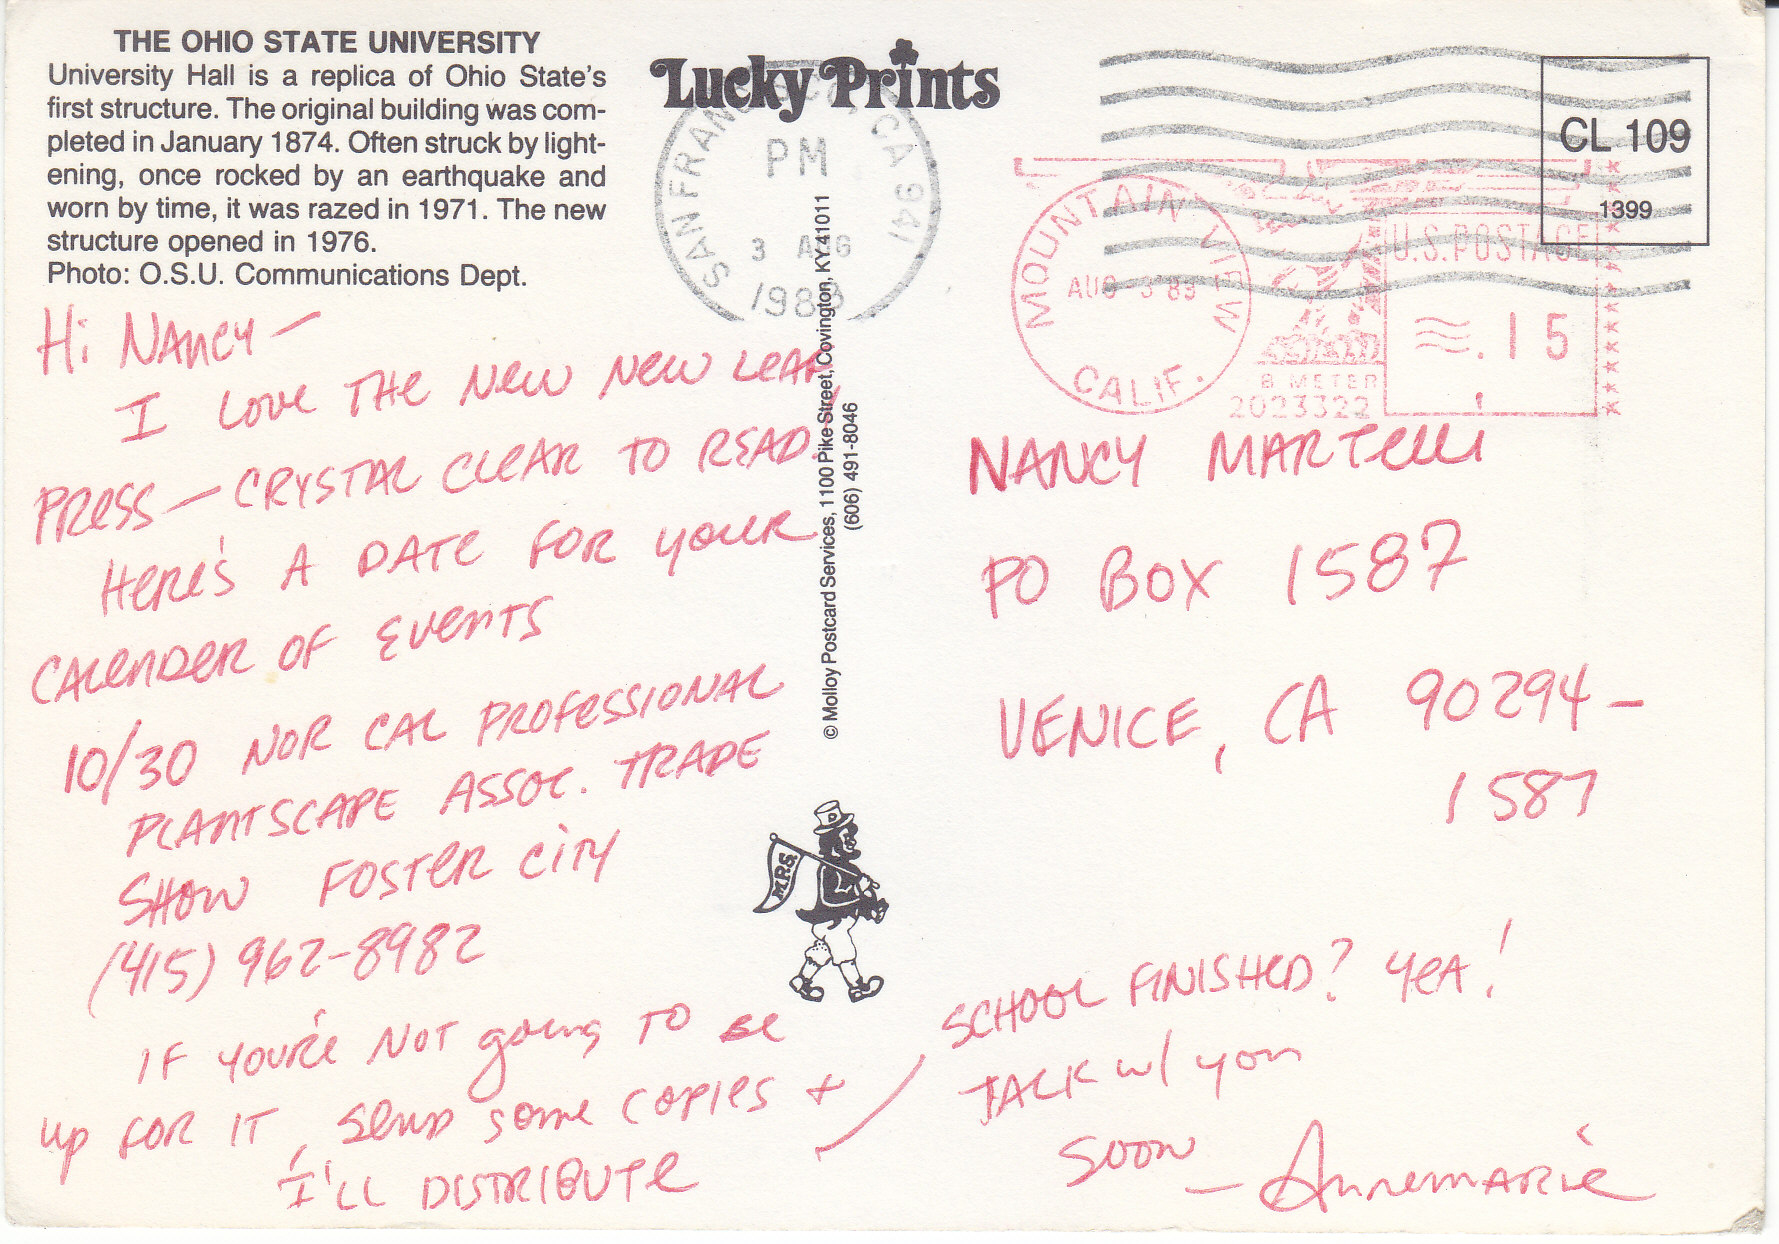 THE OHIO STATE UNIVERSITY
University Hall is a replica of Ohio State's
first structure. The original building was com-
pleted in January 1874. Often struck by light-
ening, once rocked by an earthquake and
worn by time, it was razed in 1971. The new
structure opened in 1976.
Photo: O.S.U. Communications Dept.
Lucky Prints
SAN FRANCISCO, CA 941
PM
3 AUG
1983
MOUNTAIN VIEW
AUG 3 '83
CALIF.
U.S. POSTAGE
.15
B METER
2023322
CL 109
1399
Hi NANCY —
I LOVE THE NEW NEW LEAF
PRESS — CRYSTAL CLEAR TO READ.
HERE'S A DATE FOR YOUR
CALENDER OF EVENTS
10/30 NOR CAL PROFESSIONAL
PLANTSCAPE ASSOC. TRADE
SHOW FOSTER CITY
(415) 962-8982
IF YOU'RE NOT going TO BE
up FOR IT, SEND some COPIES +
I'LL DISTRIBUTE
© Molloy Postcard Services, 1100 Pike Street, Covington, KY41011
(606) 491-8046
M.R.S.
NANCY MARTELLI
PO BOX 1587
VENICE, CA 90294-
1587
SCHOOL FINISHED? YEA!
TALK w/ you
SOON
— ANNEMARIE